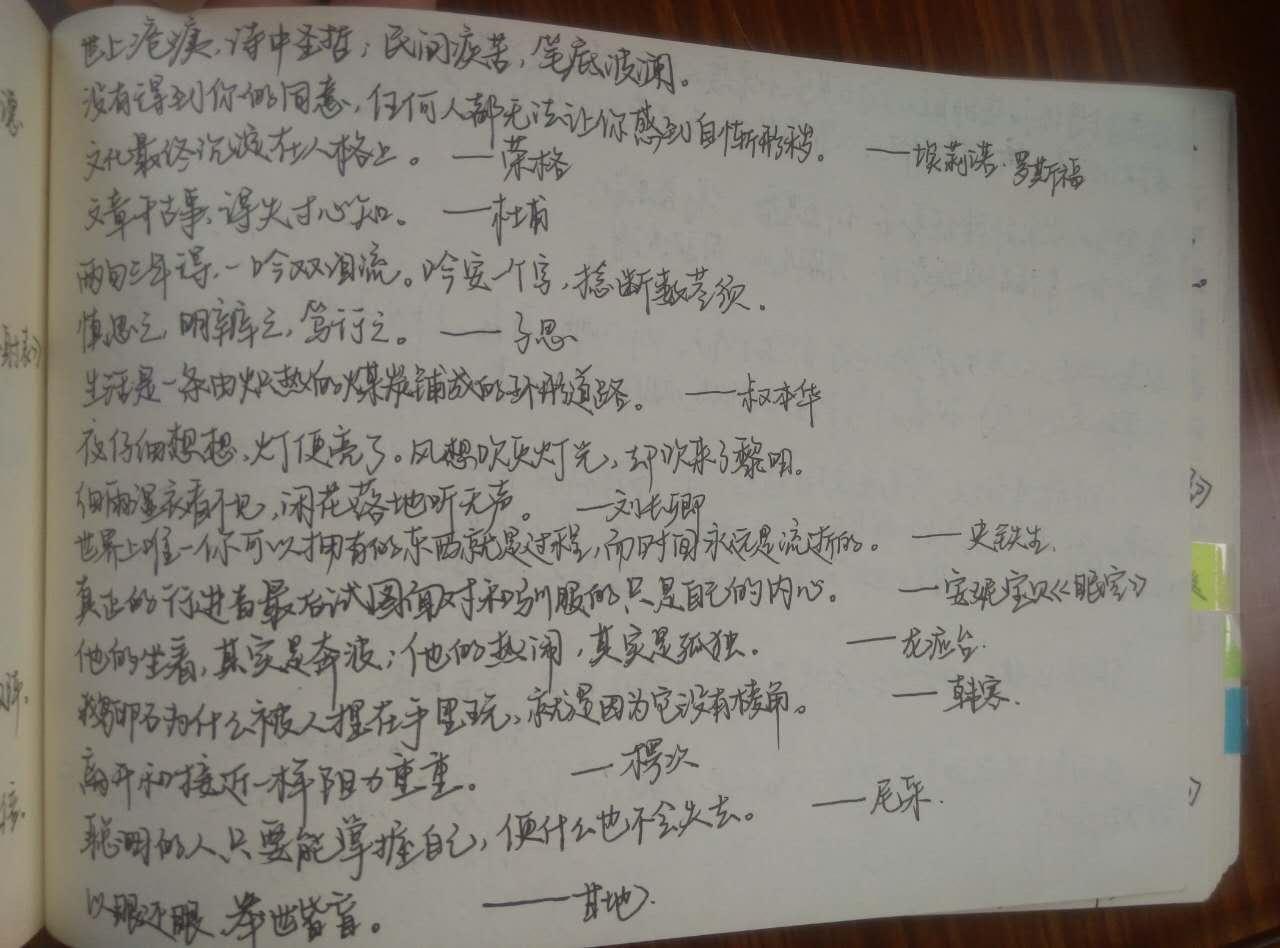 世上疮痍，诗中圣哲；民间疾苦，笔底波澜。
没有得到你的同意，任何人都无法让你感到自惭形秽。 ——埃莉诺·罗斯福
文化最终沉淀在人格上。 ——荣格
文章千古事，得失寸心知。 ——杜甫
两句三年得，一吟双泪流。吟安一个字，捻断数茎须。
慎思之，明辨之，笃行之。 ——子思
生活是一条由炽热的煤炭铺成的环形道路。 ——叔本华
夜仔细想想，灯便亮了。风想吹灭灯光，却吹来了黎明。
细雨湿衣看不见，闲花落地听无声。 ——刘长卿
世界上唯一你可以拥有的东西就是过程，而时间永远是流逝的。 ——史铁生.
真正的行进者最后试图面对和驯服的只是自己的内心。 ——安妮宝贝《眠空》
他的坐着，其实是奔波；他的热闹，其实是孤独。 ——龙应台.
鹅卵石为什么被人捏在手里玩，就是因为它没有棱角。 ——韩寒.
离开和接近一样阻力重重。 ——楞次
聪明的人只要能掌握自己，便什么也不会失去。 ——尼采.
以眼还眼，举世皆盲。 ——甘地.
德
射表》